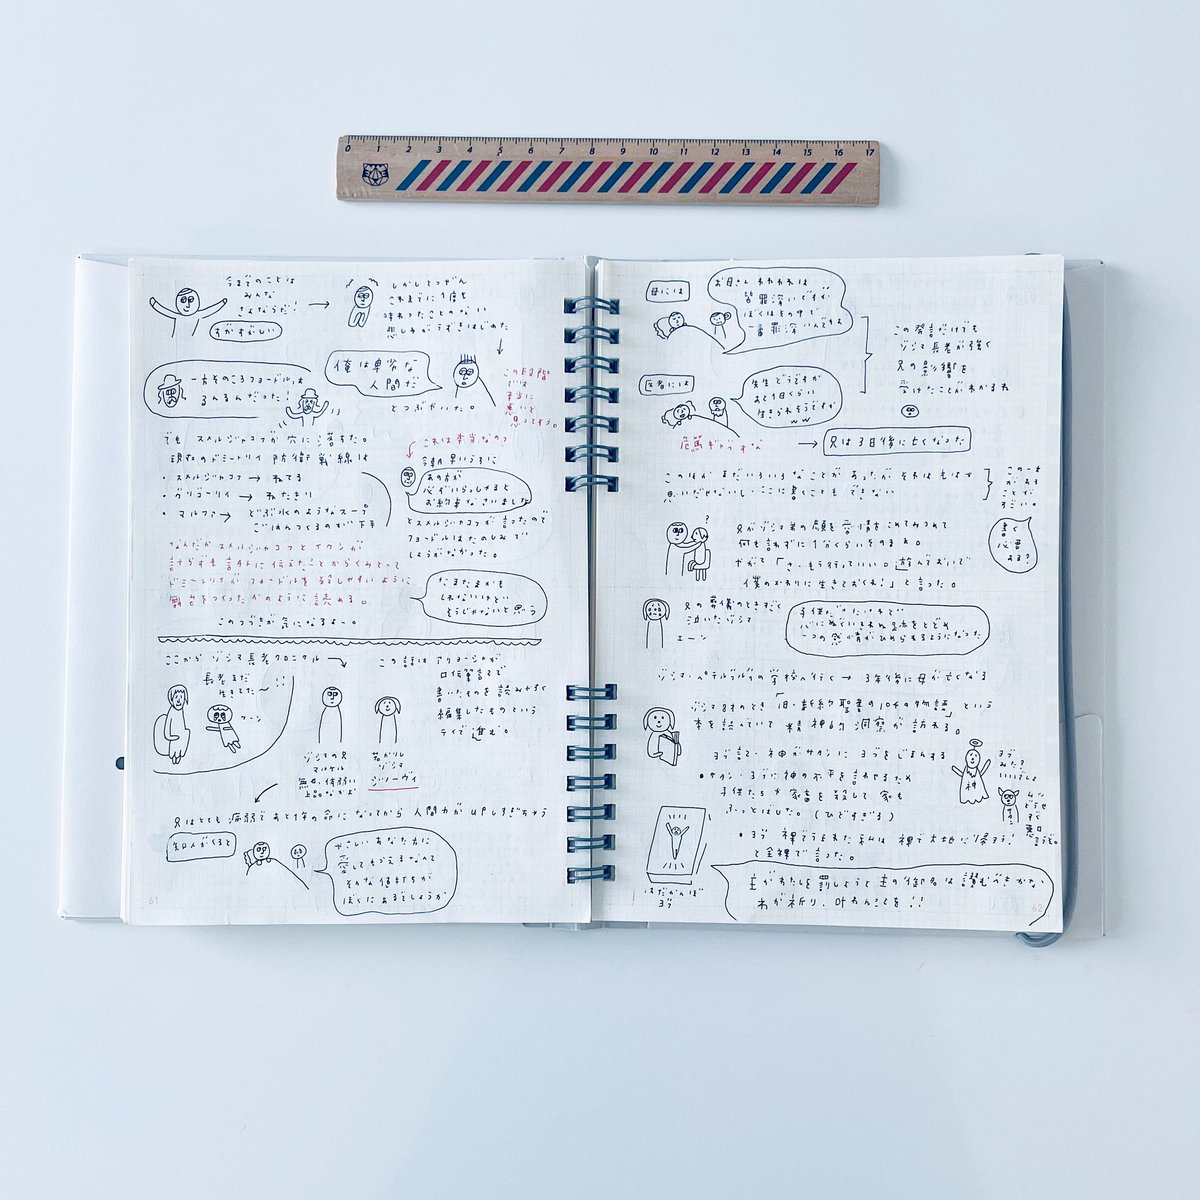 0 1 2 3 4 5 6 7 8 9 10 11 12 13 14 15 16 17
今までのことは
みんな
さよならだ!
すがすがしい
しかしとつぜん
これまでに1度も
味わったことのない
悲しみがうずきはじめた
俺は卑劣な
人間だ
とつぶやいた。
この段階
では
本当に
悪いと
思ってそう。
一方そのころフョードルは
るんるんだった!
でも スメルジャコフが穴に落ちた。
現在のドミートリイ防衛戦線は
・スメルジャコフ → ねてる
・グリゴーリイ → ねたきり
・マルファ → どぶ水のようなスープ
ごはんつくるのが下手
これは本当なの?
今朝早いうちに
あの方が
必ずいらっしゃると
お約束なさいました
とスメルジャコフが言ったので
フョードルはたのしみで
しょうがなかった。
なんだかスメルジャコフとイワンが
計らずも言外に伝えたことからくみとって
ドミートリイが フョードルを殺しやすいように
舞台をつくったかのように読める。
たまたまかも
しれないけど
そうじゃないと思う
このつづきが気になるよー。
ここから ゾシマ長老クロニクル
長老まだ
生きてたー!!
この話は アリョーシャが
口伝筆記で
書いたものを読みやすく
編集したものという
テイで進む。
ゾシマの兄
マルケル
無口、体弱い
上品なかお
若かりし
ゾシマ
ジノーヴィ
兄はとても病弱であと1年の命になってから人間力がupしすぎちゃう
知人がくると
やさしいあなた方に
愛してもらえるなんて
そんな値打ちが
ぼくにあるでしょうか
61
母には
お母さん われわれは
皆罪深いですが
ぼくはその中で
一番罪深いんですよ
この発言だけでも
ゾシマ長老が強く
兄の影響を
受けたことがわかるね
医者には
先生どうですか
あと1日くらい
生きられそうですか
ww
危篤ギャグすな
→ 兄は3日後に亡くなった
このほかまだいろいろなことがあったが それはもはや
思いだせないし、ここに書くこともできない
この一文
あること
がす
すごい。
書く
必要
ある?
兄がゾシマ弟の顔を愛情をこめてみつめて
何も言わずに1分くらいそのまま。
やがて「さ、もう行っていい。遊んでおいで
僕のかわりに生きておくれ!」と言った。
兄の葬儀のときすごく
泣いたゾシマ
エーン
子供だったけれど
心にぬぐいきれぬ足跡をとどめ
一つの感情がひめられるようになった
ゾシマ・ペテルブルグの学校へ行く → 3年後に母が亡くなる
ゾシマ8才のとき「旧・新約聖書の104の物語」という
本を読んでいて 精神的洞察が訪れる。
ヨブ記で・神がサタンに ヨブをじまんする
・サタン・ヨブに神の不平を言わせるため
子供たちや家畜を殺して 家も
ふっとばした。(ひどすぎる)
・ヨブ 裸でうまれた私は 裸で大地に帰ろう!
と全裸で言った。
神
ヨブ
みた?
いいでしょ
サタン
どうせ
すぐ
悪口
言うぞ
はだかんぼ
ヨブ
主がわたしを罰しようと主の御名は讃むべきかな
わが祈り、叶わんことを!!
62